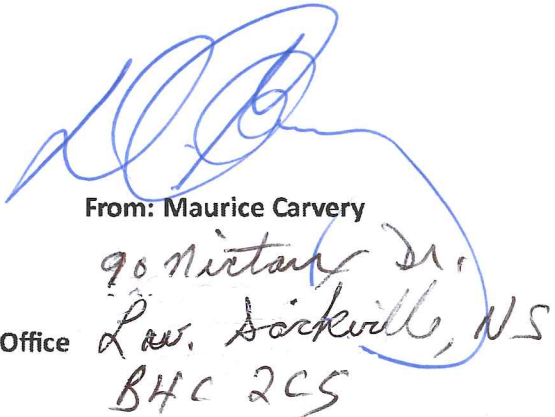 From: Maurice Carvery
90 Nictaux Dr.
Office Low. Sackville, NS
B4C 2C5